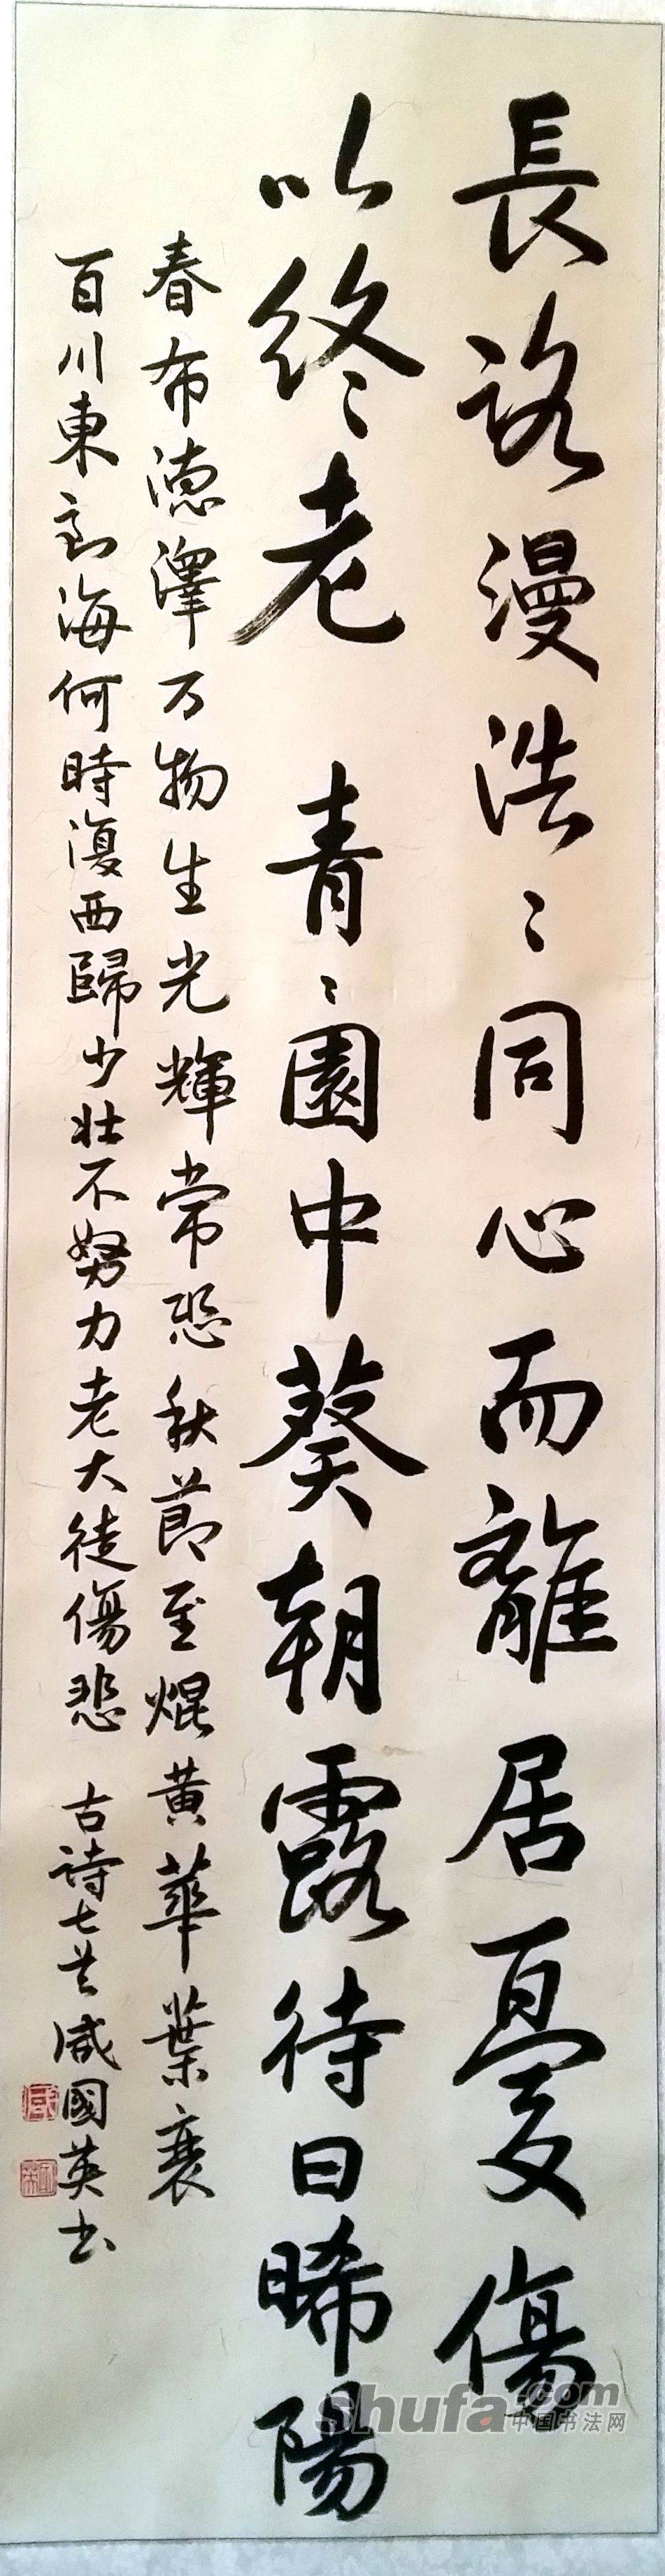 長路漫浩〻同心而離居憂傷
以終〻老 青〻園中葵朝露待日晞陽
春布德澤万物生光輝常恐秋節至焜黄華葉衰
百川東到海何時復西歸少壯不努力老大徒傷悲 古诗七 國英书
shufa.com
中国书法网